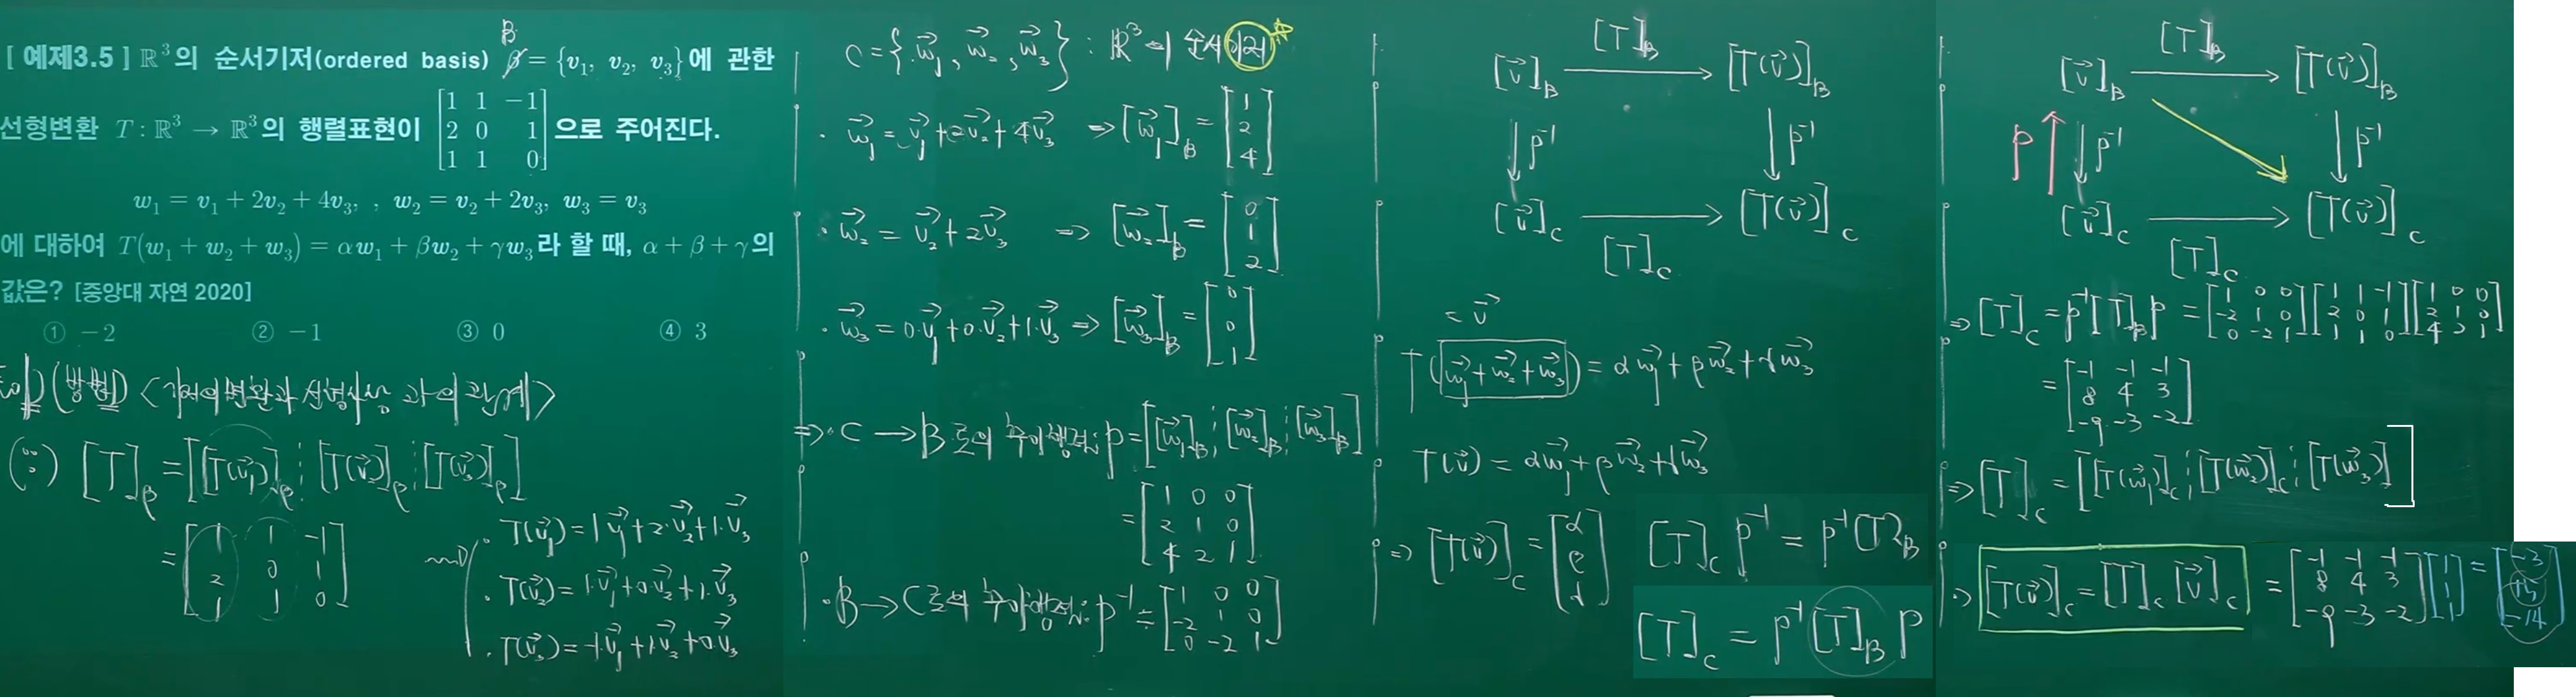 [ 예제3.5 ] ℝ³의 순서기저(ordered basis) B β = {v₁, v₂, v₃}에 관한
선형변환 T : ℝ³ → ℝ³의 행렬표현이 [1 1 -1; 2 0 1; 1 1 0] 으로 주어진다.
w₁ = v₁ + 2v₂ + 4v₃, , w₂ = v₂ + 2v₃, w₃ = v₃
에 대하여 T(w₁ + w₂ + w₃) = αw₁ + βw₂ + γw₃라 할 때, α + β + γ의
값은? [중앙대 자연 2020]
① -2 ② -1 ③ 0 ④ 3
sol) (방법) <기저의 변환과 선형사상과의 관계>
(∵) [T]_β = [[T(v₁)]_β ⋮ [T(v₂)]_β ⋮ [T(v₃)]_β]
= [1 1 -1; 2 0 1; 1 1 0]
· T(v₁) = 1·v₁ + 2·v₂ + 1·v₃
· T(v₂) = 1·v₁ + 0·v₂ + 1·v₃
· T(v₃) = -1·v₁ + 1·v₂ + 0·v₃
C = {w₁, w₂, w₃} : ℝ³의 순서기저
· w₁ = v₁ + 2v₂ + 4v₃ ⇒ [w₁]_B = [1; 2; 4]
· w₂ = v₂ + 2v₃ ⇒ [w₂]_B = [0; 1; 2]
· w₃ = 0·v₁ + 0·v₂ + 1·v₃ ⇒ [w₃]_B = [0; 0; 1]
⇒ · C → B 로의 추이행렬: P = [[w₁]_B ⋮ [w₂]_B ⋮ [w₃]_B]
= [1 0 0; 2 1 0; 4 2 1]
· B → C 로의 추이행렬: P⁻¹ = [1 0 0; -2 1 0; 0 -2 1]
[T]_B
[v]_B → [T(v)]_B
↓ P⁻¹ ↓ P⁻¹
[v]_C → [T(v)]_C
[T]_C
= v
T(w₁ + w₂ + w₃) = αw₁ + βw₂ + γw₃
T(v) = αw₁ + βw₂ + γw₃
⇒ [T(v)]_C = [α; β; γ]
[T]_C P⁻¹ = P⁻¹ [T]_B
[T]_C = P⁻¹ [T]_B P
[T]_B
[v]_B → [T(v)]_B
P ↑ ↓ P⁻¹ ↓ P⁻¹
[v]_C → [T(v)]_C
[T]_C
⇒ [T]_C = P⁻¹ [T]_B P = [1 0 0; -2 1 0; 0 -2 1] [1 1 -1; 2 0 1; 1 1 0] [1 0 0; 2 1 0; 4 2 1]
= [-1 -1 -1; 8 4 3; -9 -3 -2]
⇒ [T]_C = [[T(w₁)]_C ⋮ [T(w₂)]_C ⋮ [T(w₃)]]
⇒ [T(v)]_C = [T]_C [v]_C = [-1 -1 -1; 8 4 3; -9 -3 -2] [1; 1; 1] = [-3; 15; -14]